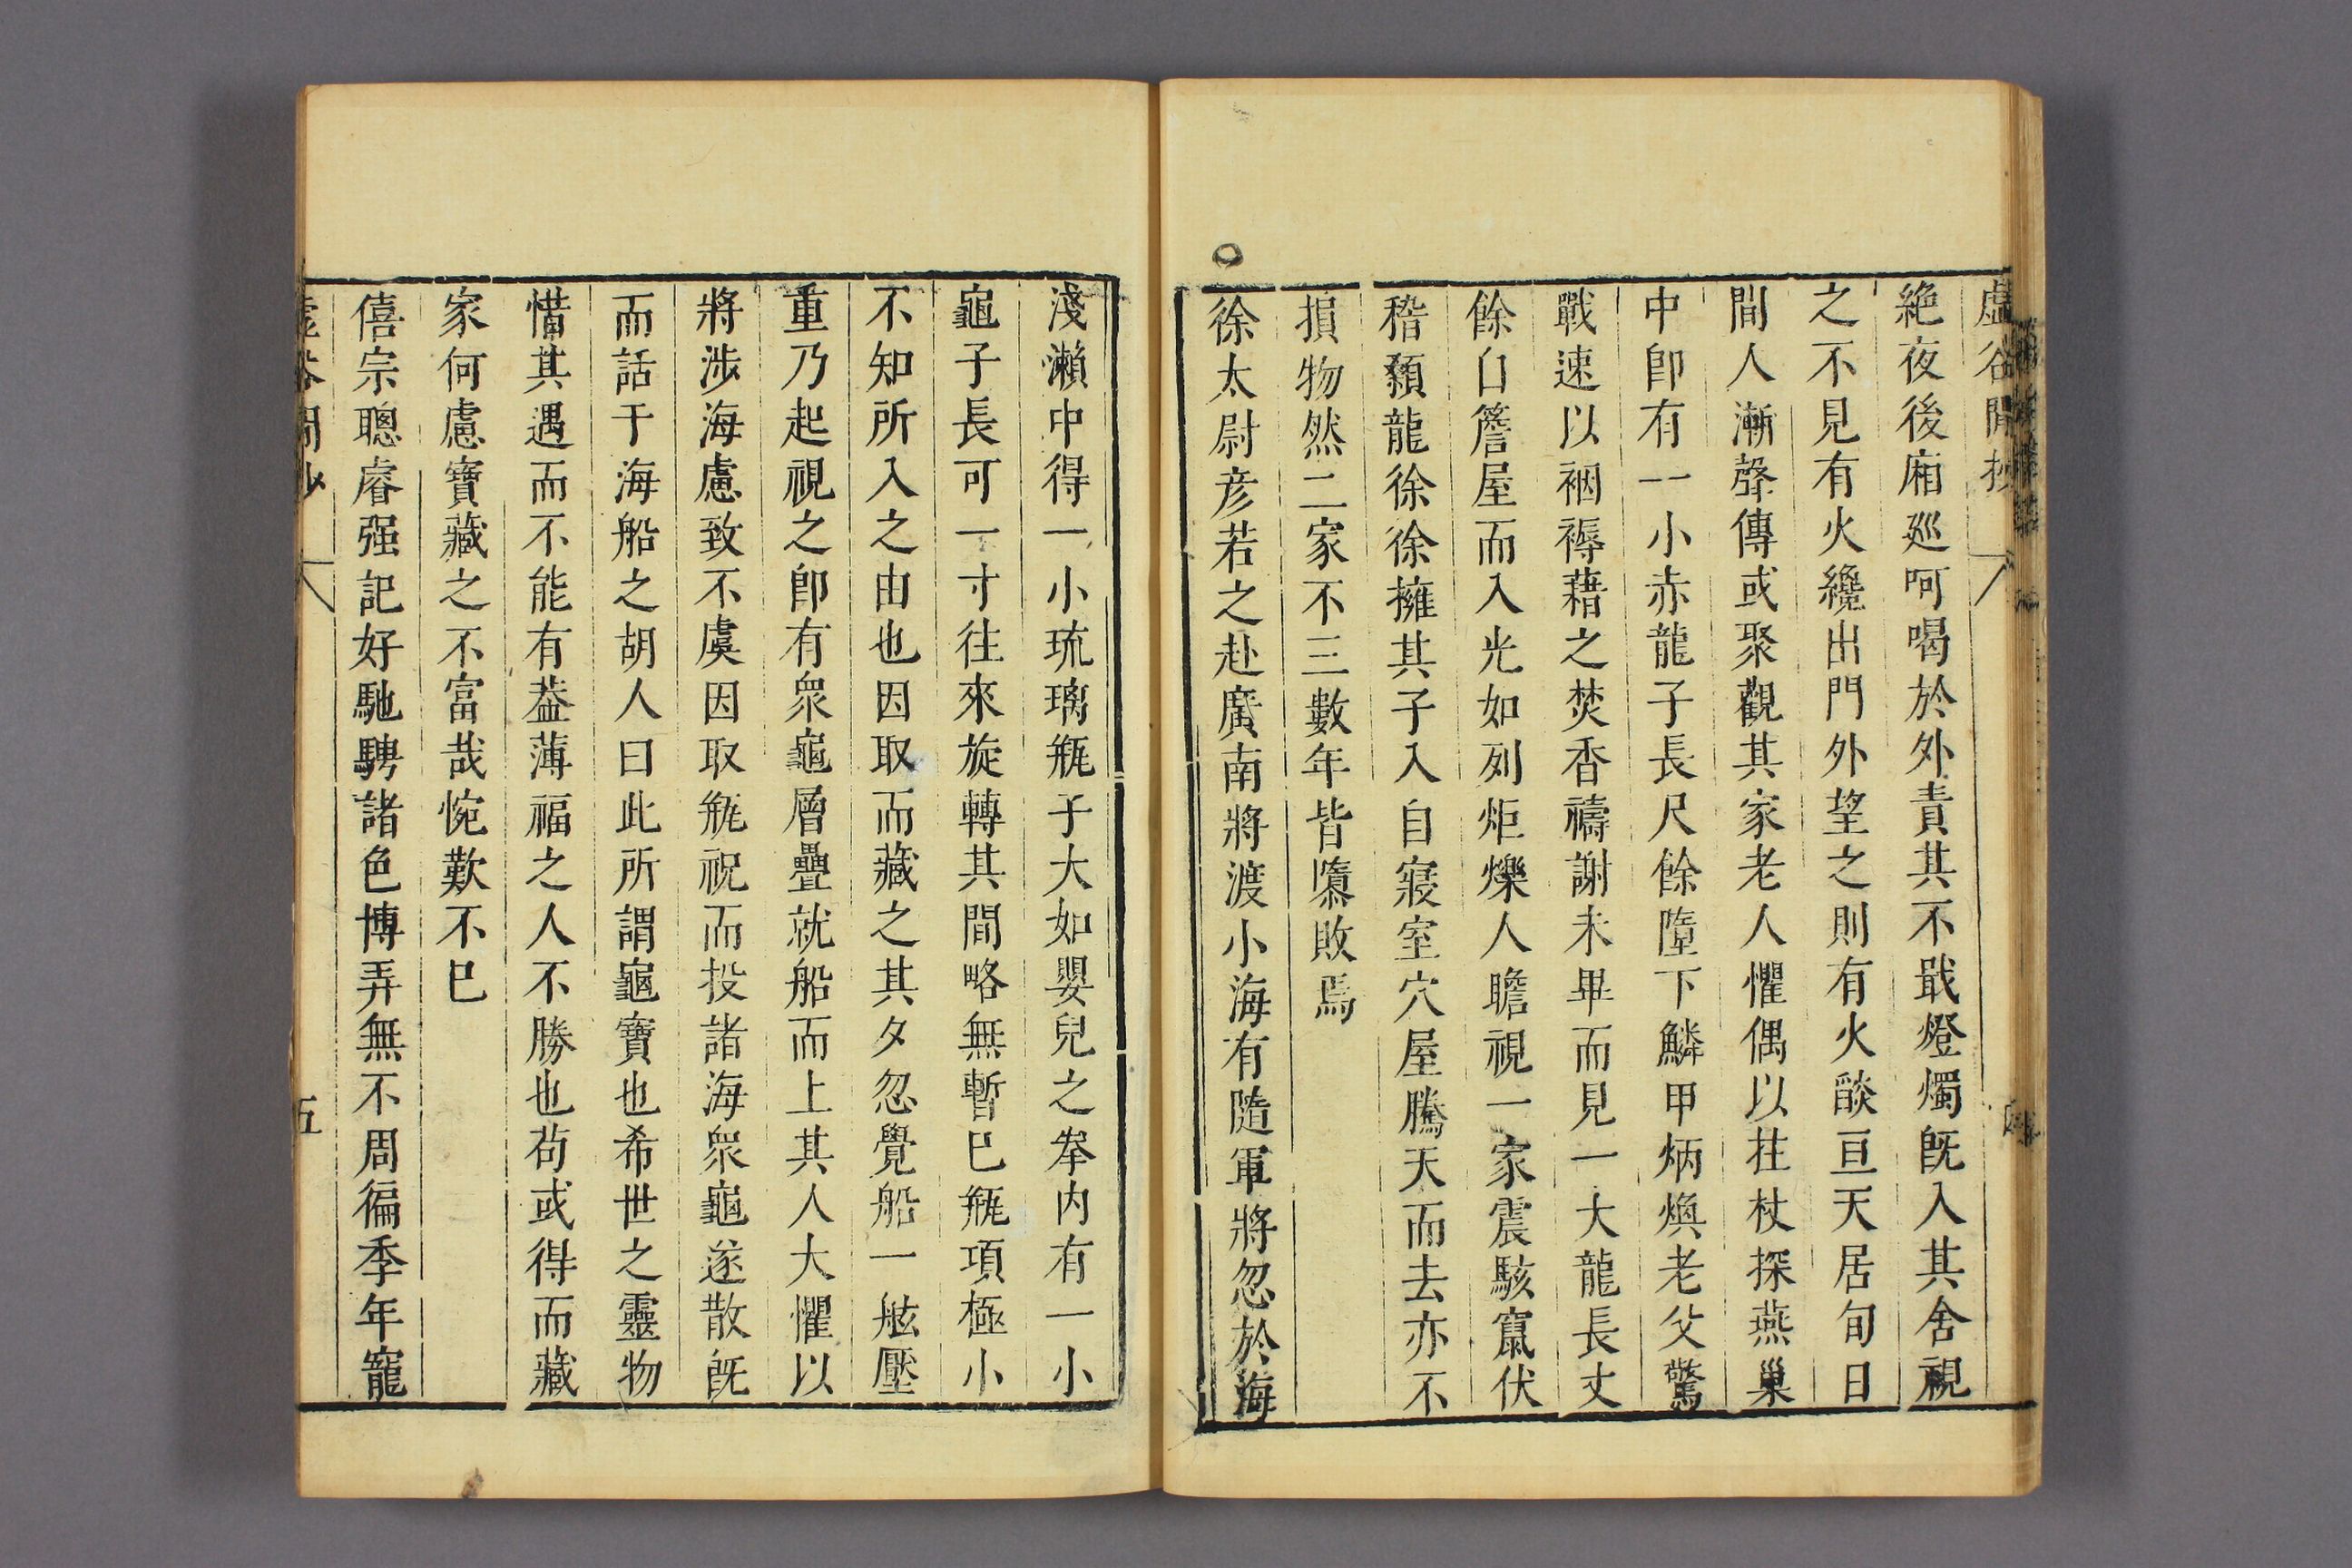 虛谷閒抄
絶夜後廂廵呵喝於外責其不戢燈燭旣入其舍視
之不見有火纔出門外望之則有火燄亘天居旬日
間人漸聲傳或聚觀其家老人懼偶以拄杖探燕巢
中卽有一小赤龍子長尺餘墮下鱗甲炳煥老父驚
戰速以裀褥藉之焚香禱謝未畢而見一大龍長丈
餘自簷屋而入光如列炬爍人瞻視一家震駭竄伏
稽顙龍徐徐擁其子入自寢室穴屋騰天而去亦不
損物然二家不三數年皆隳敗焉
徐太尉彦若之赴廣南將渡小海有隨軍將忽於海
淺瀨中得一小琉璃瓶子大如嬰兒之拳内有一小
龜子長可一寸往來旋轉其間略無暫巳瓶項極小
不知所入之由也因取而藏之其夕忽覺船一舷壓
重乃起視之卽有衆龜層疊就船而上其人大懼以
將涉海慮致不虞因取瓶祝而投諸海衆龜遂散旣
而話于海船之胡人曰此所謂龜寶也希世之靈物
惜其遇而不能有葢薄福之人不勝也茍或得而藏
家何慮寶藏之不富哉惋歎不巳
僖宗聰睿强記好馳騁諸色博弄無不周徧季年寵
虛谷閒抄
五